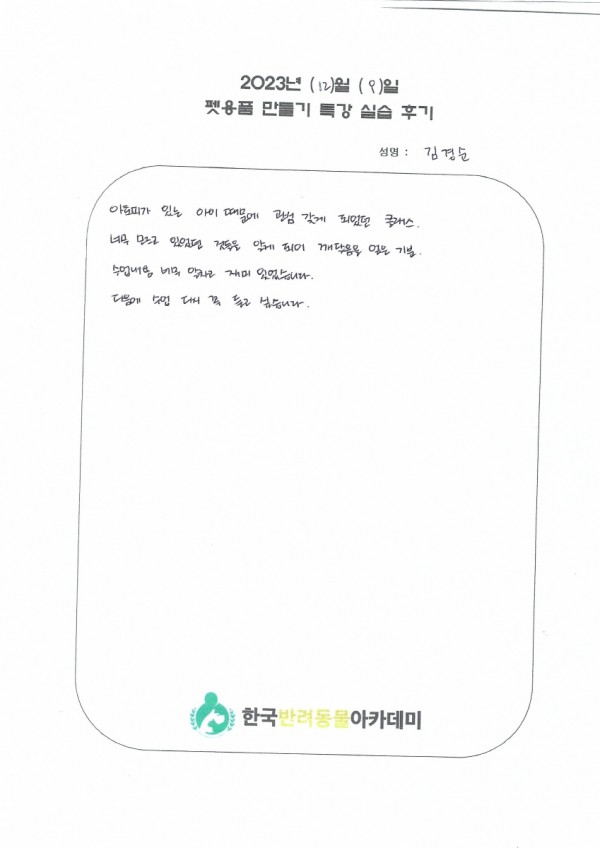 2023년 (12)월 (9)일
펫용품 만들기 특강 실습 후기
성명 : 김경순
아토피가 있는 아이 때문에 관심 갖게 되었던 클래스.
너무 모르고 있었던 것들을 알게 되어 깨달음을 얻은 기분.
수업내용 너무 알차고 재미 있었습니다.
다음에 수업 다시 꼭 듣고 싶습니다.
한국반려동물아카데미